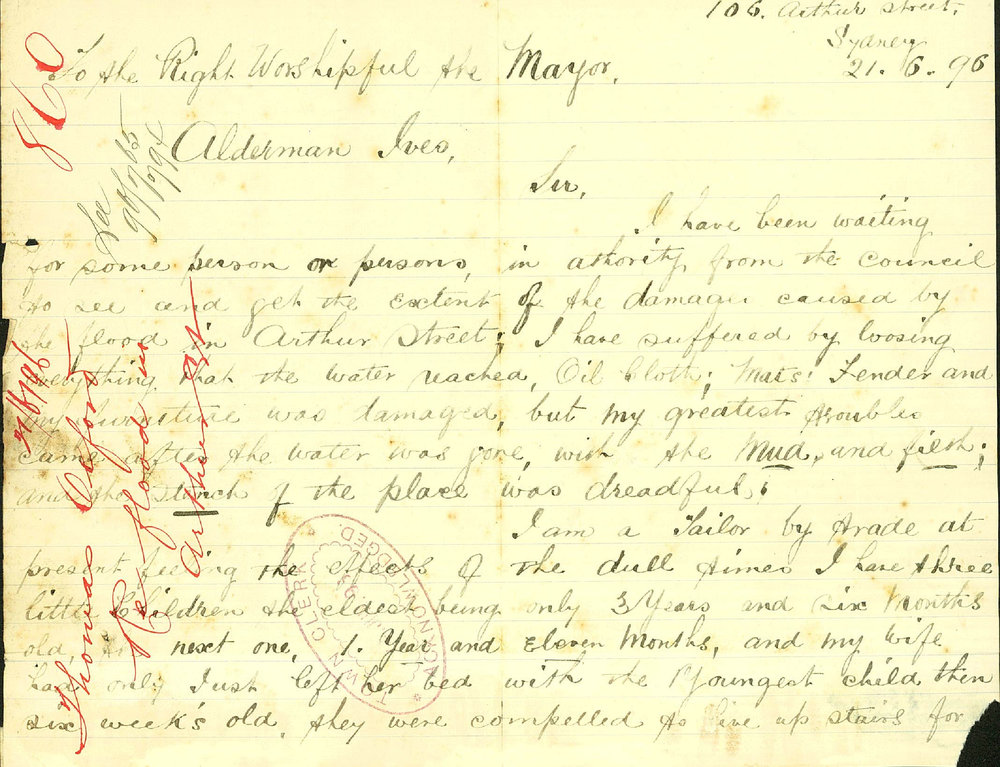 106. Arthur Street,
Sydney
21. 6. 96
To the Right Worshipful the Mayor,
Alderman Ives,
Sir,
I have been waiting
for some person or persons, in athority from the Council
to see and get the extent of the damage caused by
the flood in Arthur Street; I have suffered by loosing
everything that the water reached, Oil Cloth; Mats; Fender and
my furniture was damaged, but my greatest trouble
came after the water was gone, with the Mud, and filth;
and the stench of the place was dreadful;
I am a Tailor by trade at
present feeling the effects of the dull times I have three
little Children the eldest being only 3 Years and six Months
old, the next one, 1. Year and Eleven Months, and my Wife
had only Just left her bed with the Youngest child then
six week's old, they were compelled to live up stairs for
860
96/1765
96/1794
96/1796
Thomas
Re flood in
Arthur St
TOWN CLERK
ACKNOWLEDGED